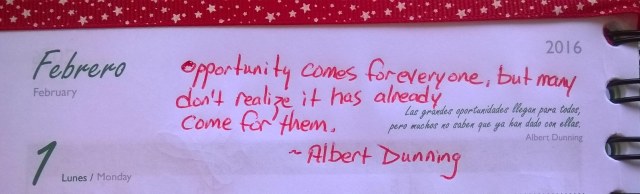 Febrero
February
2016
Opportunity comes for everyone, but many
don't realize it has already
come for them.
~ Albert Dunning
Las grandes oportunidades llegan para todos,
pero muchos no saben que ya han dado con ellas.
Albert Dunning
1
Lunes / Monday